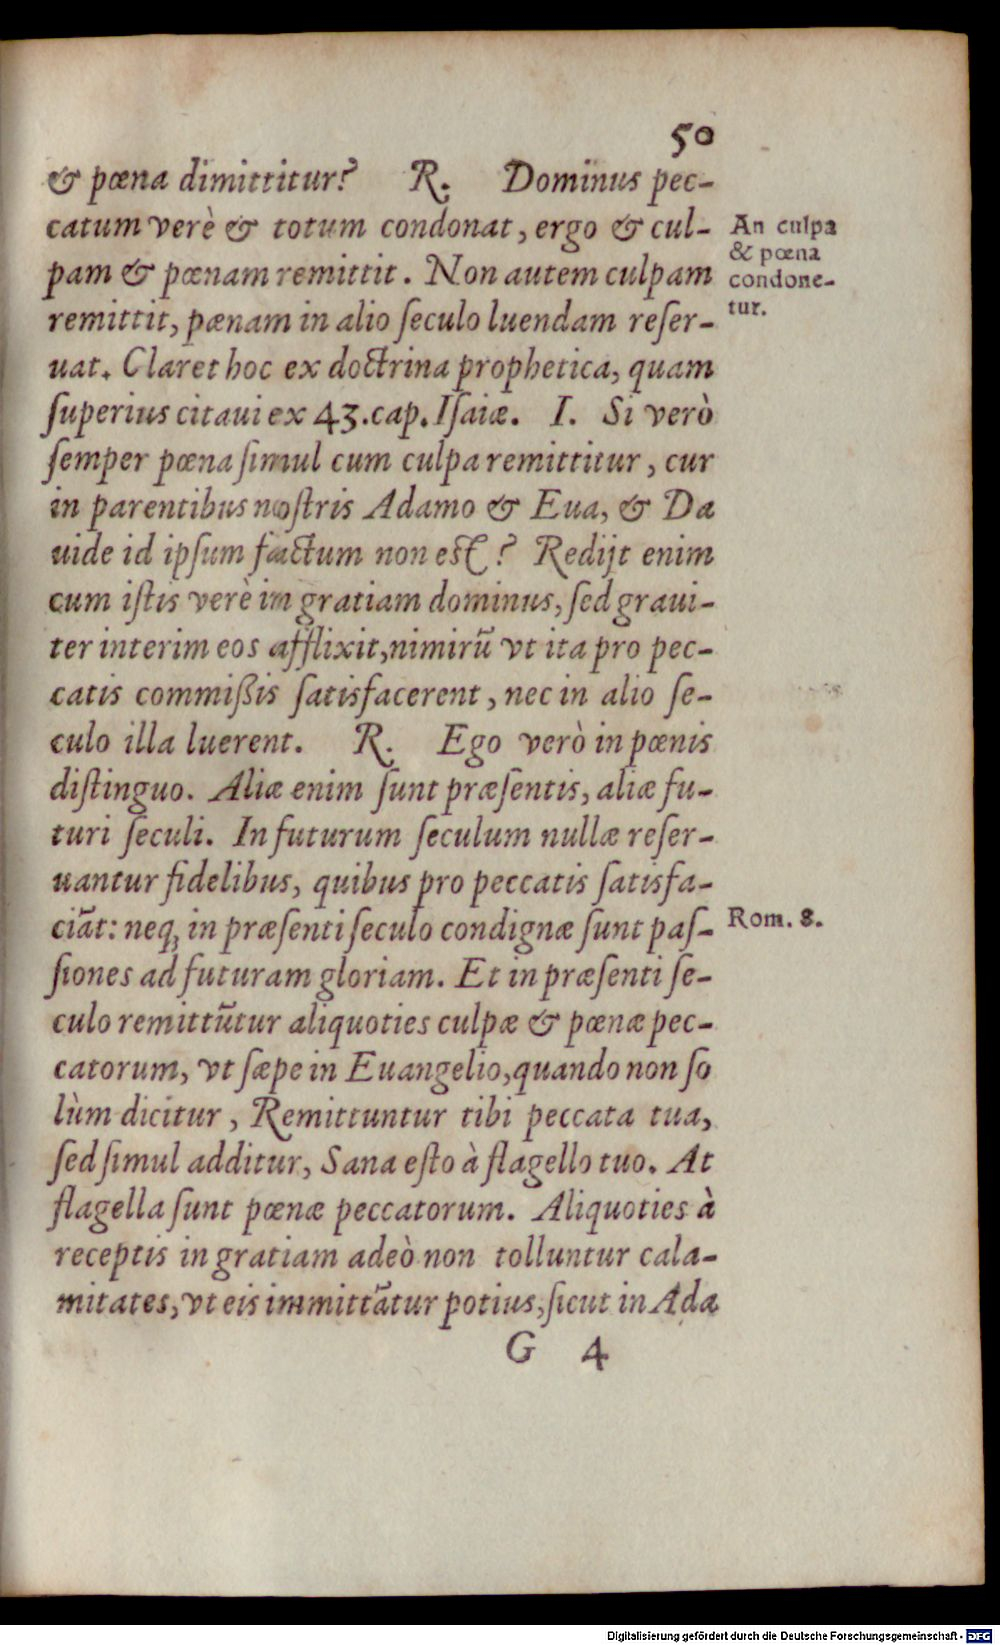 50
& pœna dimittitur? R. Dominus pec-
catum verè & totum condonat, ergo & cul-
pam & pœnam remittit. Non autem culpam
remittit, pænam in alio ſeculo luendam reſer-
uat. Claret hoc ex doctrina prophetica, quam
ſuperius citaui ex 43.cap. Iſaiæ. I. Si verò
ſemper pœna ſimul cum culpa remittitur, cur
in parentibus noſtris Adamo & Eua, & Da
uide id ipſum factum non eſt? Redijt enim
cum iſtis verè in gratiam dominus, ſed graui-
ter interim eos afflixit, nimirũ vt ita pro pec-
catis commißis ſatisfacerent, nec in alio ſe-
culo illa luerent. R. Ego verò in pœnis
diſtinguo. Aliæ enim ſunt præſentis, aliæ fu-
turi ſeculi. In futurum ſeculum nullæ reſer-
uantur fidelibus, quibus pro peccatis ſatisfa-
ciãt: neq; in præſenti ſeculo condignæ ſunt paſ-
ſiones ad futuram gloriam. Et in præſenti ſe-
culo remittũtur aliquoties culpæ & pœnæ pec-
catorum, vt ſæpe in Euangelio, quando non ſo
lùm dicitur, Remittuntur tibi peccata tua,
ſed ſimul additur, Sana eſto à flagello tuo. At
flagella ſunt pœnæ peccatorum. Aliquoties à
receptis in gratiam adeò non tolluntur cala-
mitates, vt eis immittãtur potius, ſicut in Ada
G 4
An culpa
& pœna
condone-
tur.
Rom. 8.
Digitalisierung gefördert durch die Deutsche Forschungsgemeinschaft - DFG